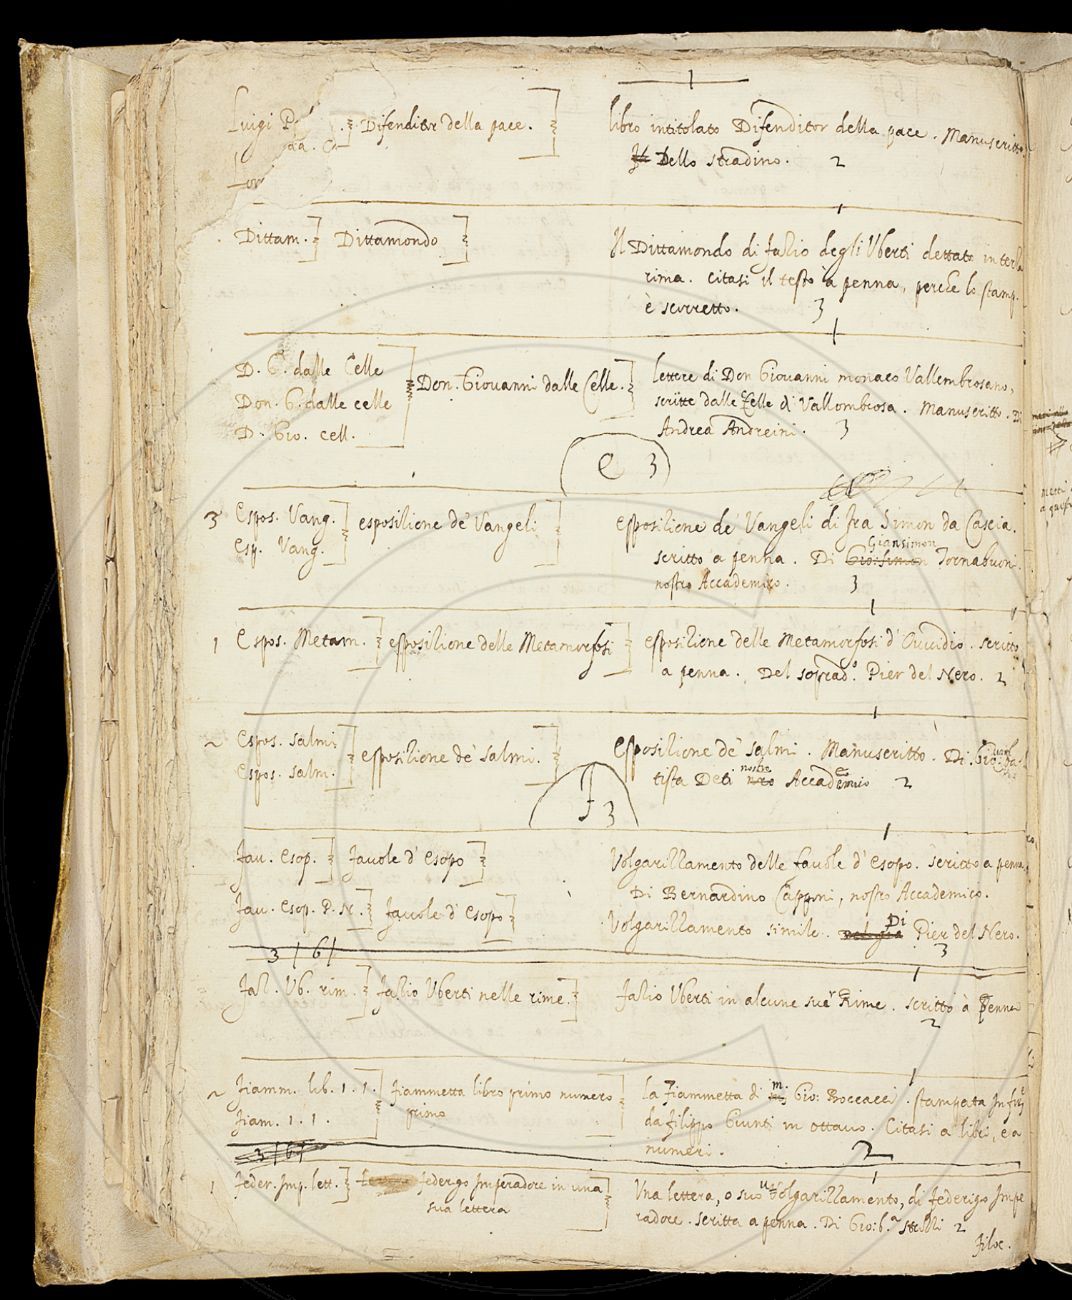 Luigi P
Difenditor della pace.
libro intitolato Difenditor della pace. Manuscritto
Dello stradino. 2
Dittam. Dittamondo
Il Dittamondo di fazio degli Vberti dettato in terza
rima. Citasi il testo a penna, perche lo stamp.
è scorretto. 3
D. G. dalle Celle
Don. G. dalle celle
D. Gio. cell.
Don. Giouanni dalle Celle.
lettere di Don Giouanni monaco Vallembrosano,
scritte dalle Celle di Vallombrosa. Manuscritto. Di
Andrea Andreini. 3
E 3
3 Espos. Vang.
Esp. Vang.
esposizione de' Vangeli
Esposizione de' Vangeli di fra Simon da Cascia.
Giansimon
scritto a penna. Di Gio: simon Tornabuoni.
nostro Accademico. 3
1 Espos. Metam. esposizione delle Metamorfosi
esposizione delle Metamorfosi d' Ouuidio. scritto
a penna. Del soprad.º Pier del Nero. 2
Espos. salmi
Espos. salm.
esposizione de' salmi.
Esposizione de' salmi. Manuscritto. Di Gio: ba
nostro
tista Deti nro Accademico 2
F 3
fau. Esop. fauole d' Esopo
Volgarizzamento delle fauole d' Esopo. scritto a penna
Di Bernardino Capponi, nostro Accademico.
fau. Esop. P. N. fauole d' Esopo
Di
Volgarizzamento simile. Pier del Nero.
3
3 / 6 /
faz. Vb. rim. fazio Vberti nelle rime.
fazio Vberti in alcune sue Rime. scritto à penna
2
fiamm. lib. 1. 1.
fiam. 1. 1.
fiammetta libro primo numero
primo
m.
la fiammetta di Gio: Boccacci. stampata in fir
da filippo Giunti in ottauo. Citasi a libri, e a
numeri. 2
3 / 6 /
1 feder. Imp. lett. federigo Imperadore in una
sua lettera
Vna lettera, o suo Volgarizzamento, di federigo Impe
radore. scritta a penna. Di Gio: b.ª strozzi 2
filoc.